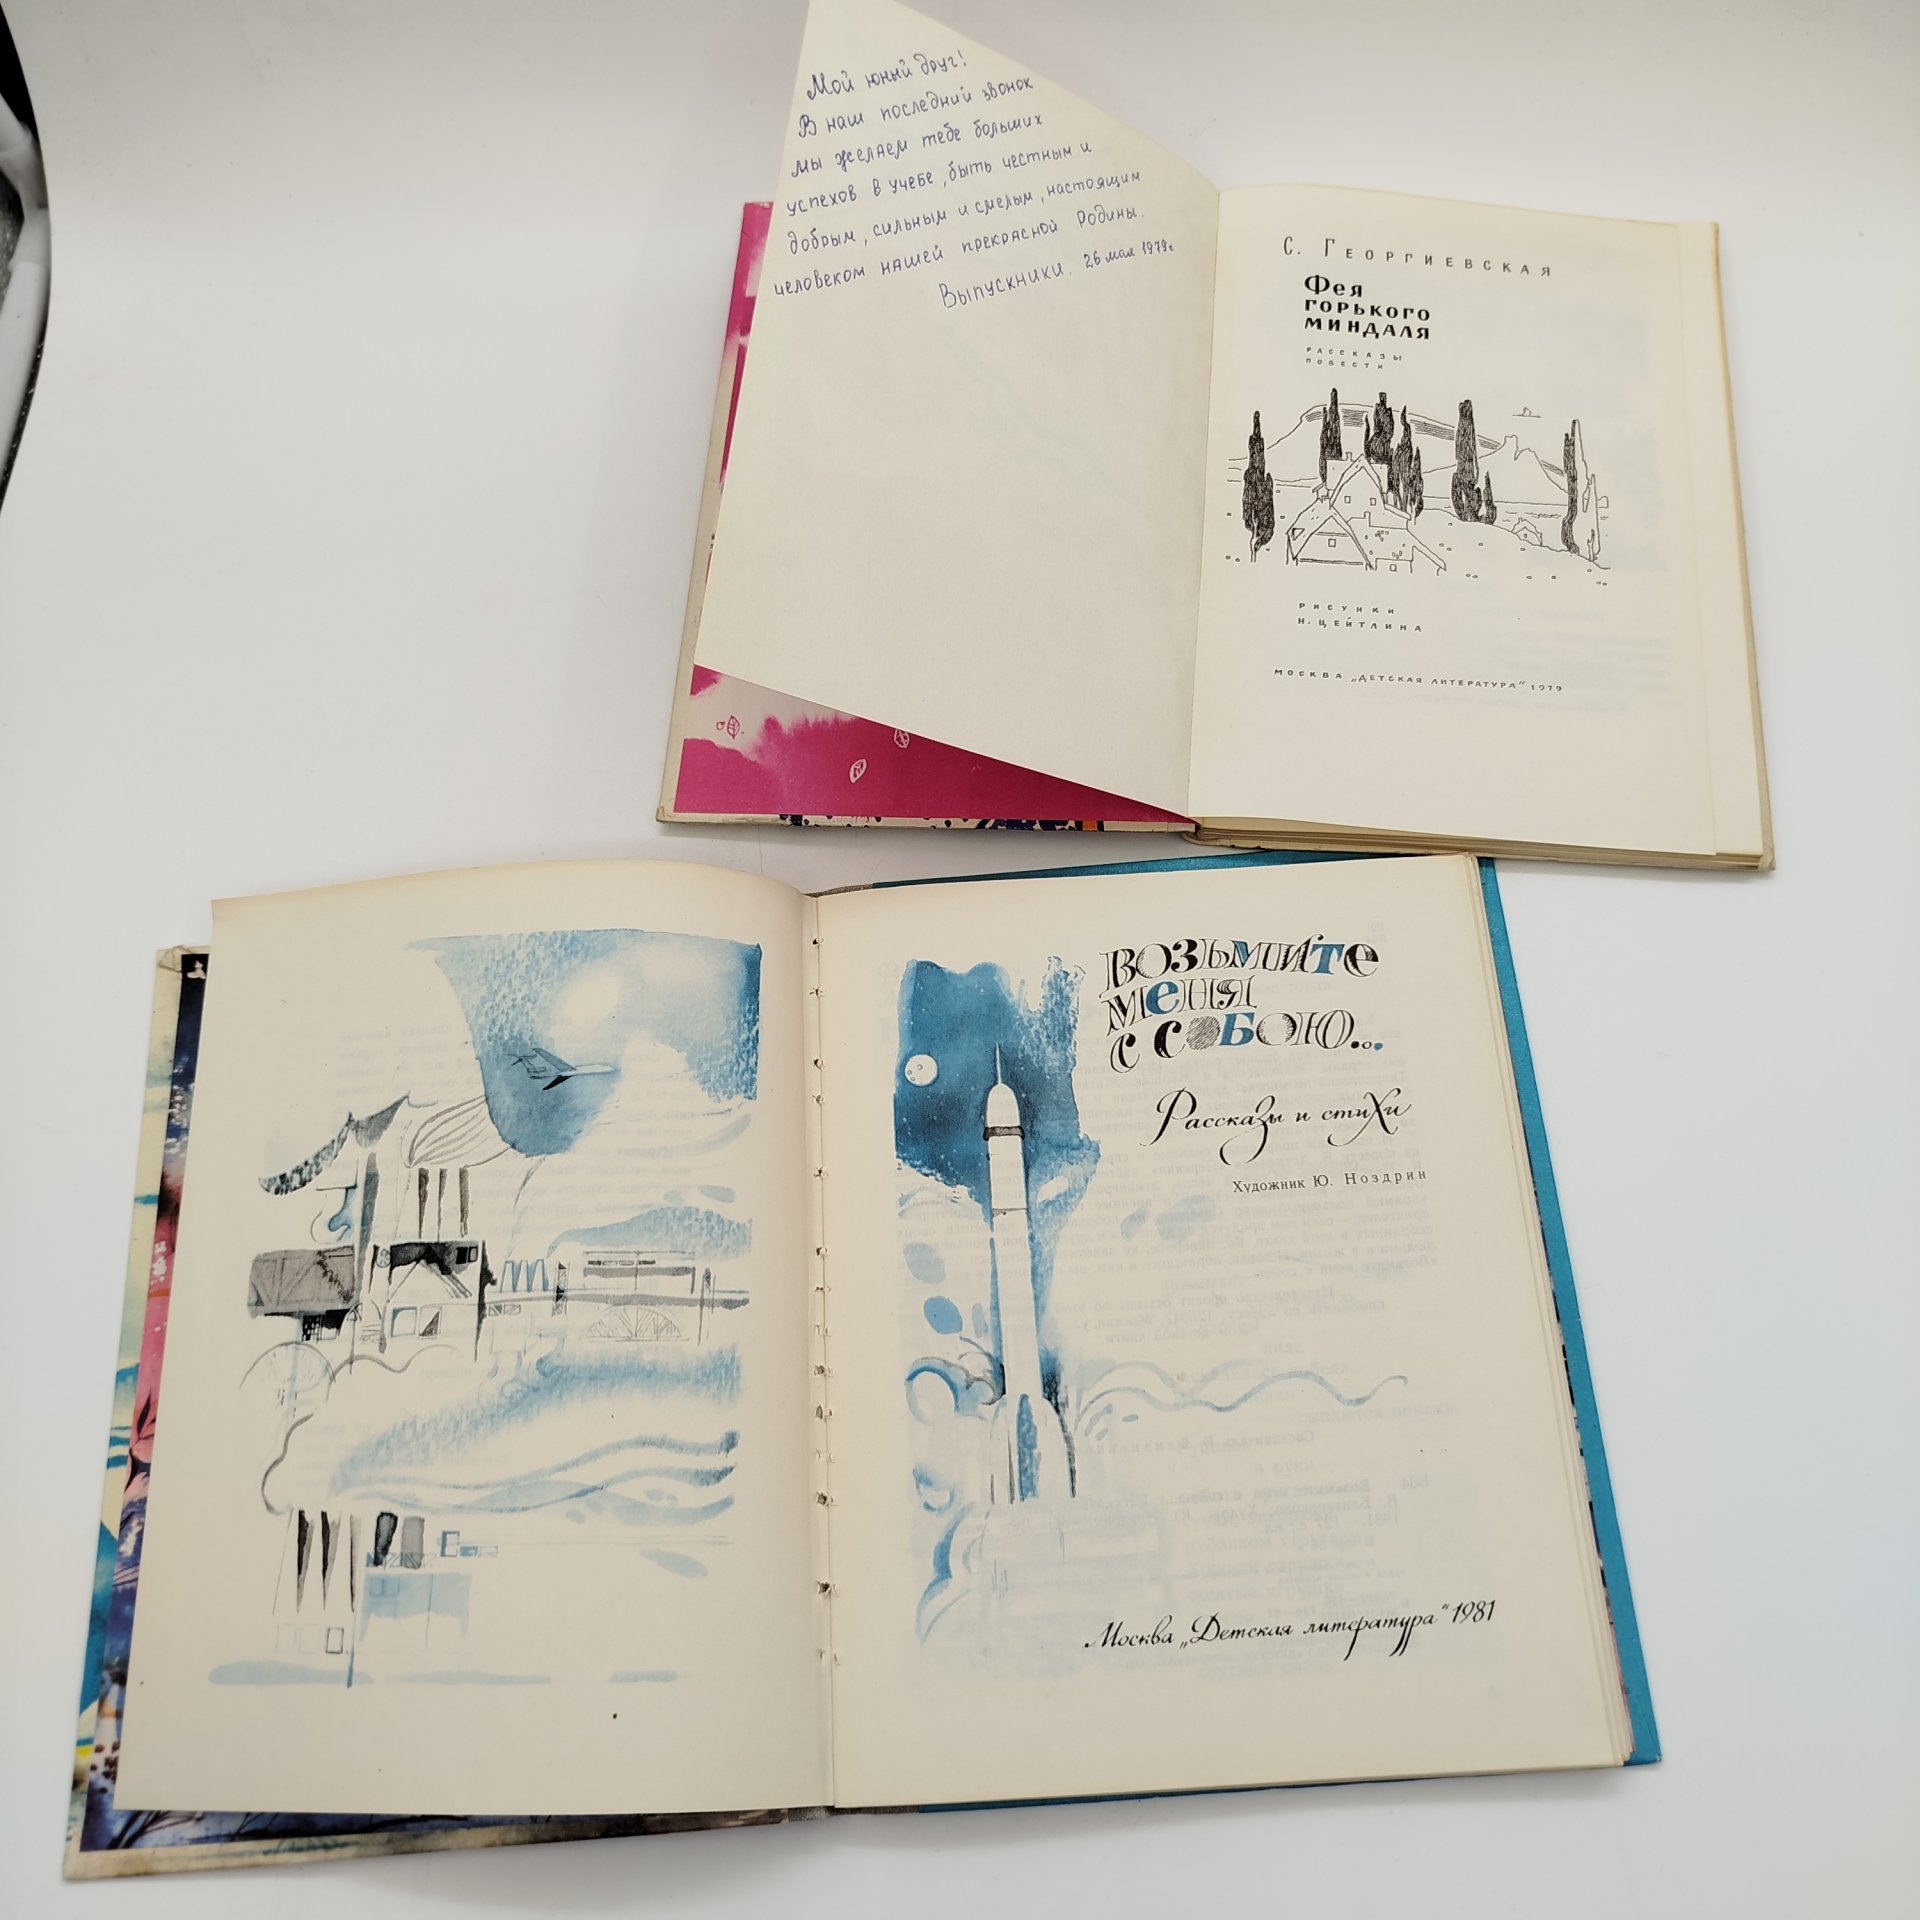 Мой юный друг!
В наш последний звонок
мы желаем тебе больших
успехов в учебе, быть честным и
добрым, сильным и смелым, настоящим
человеком нашей прекрасной Родины.
Выпускники. 26 мая 1979г
С. Георгиевская
Фея
горького
миндаля
рассказы
повести
рисунки
Н. Цейтлина
Москва „Детская литература" 1979
Возьмите
меня
с собою...
Рассказы и стихи
Художник Ю. Ноздрин
Москва „Детская литература" 1981